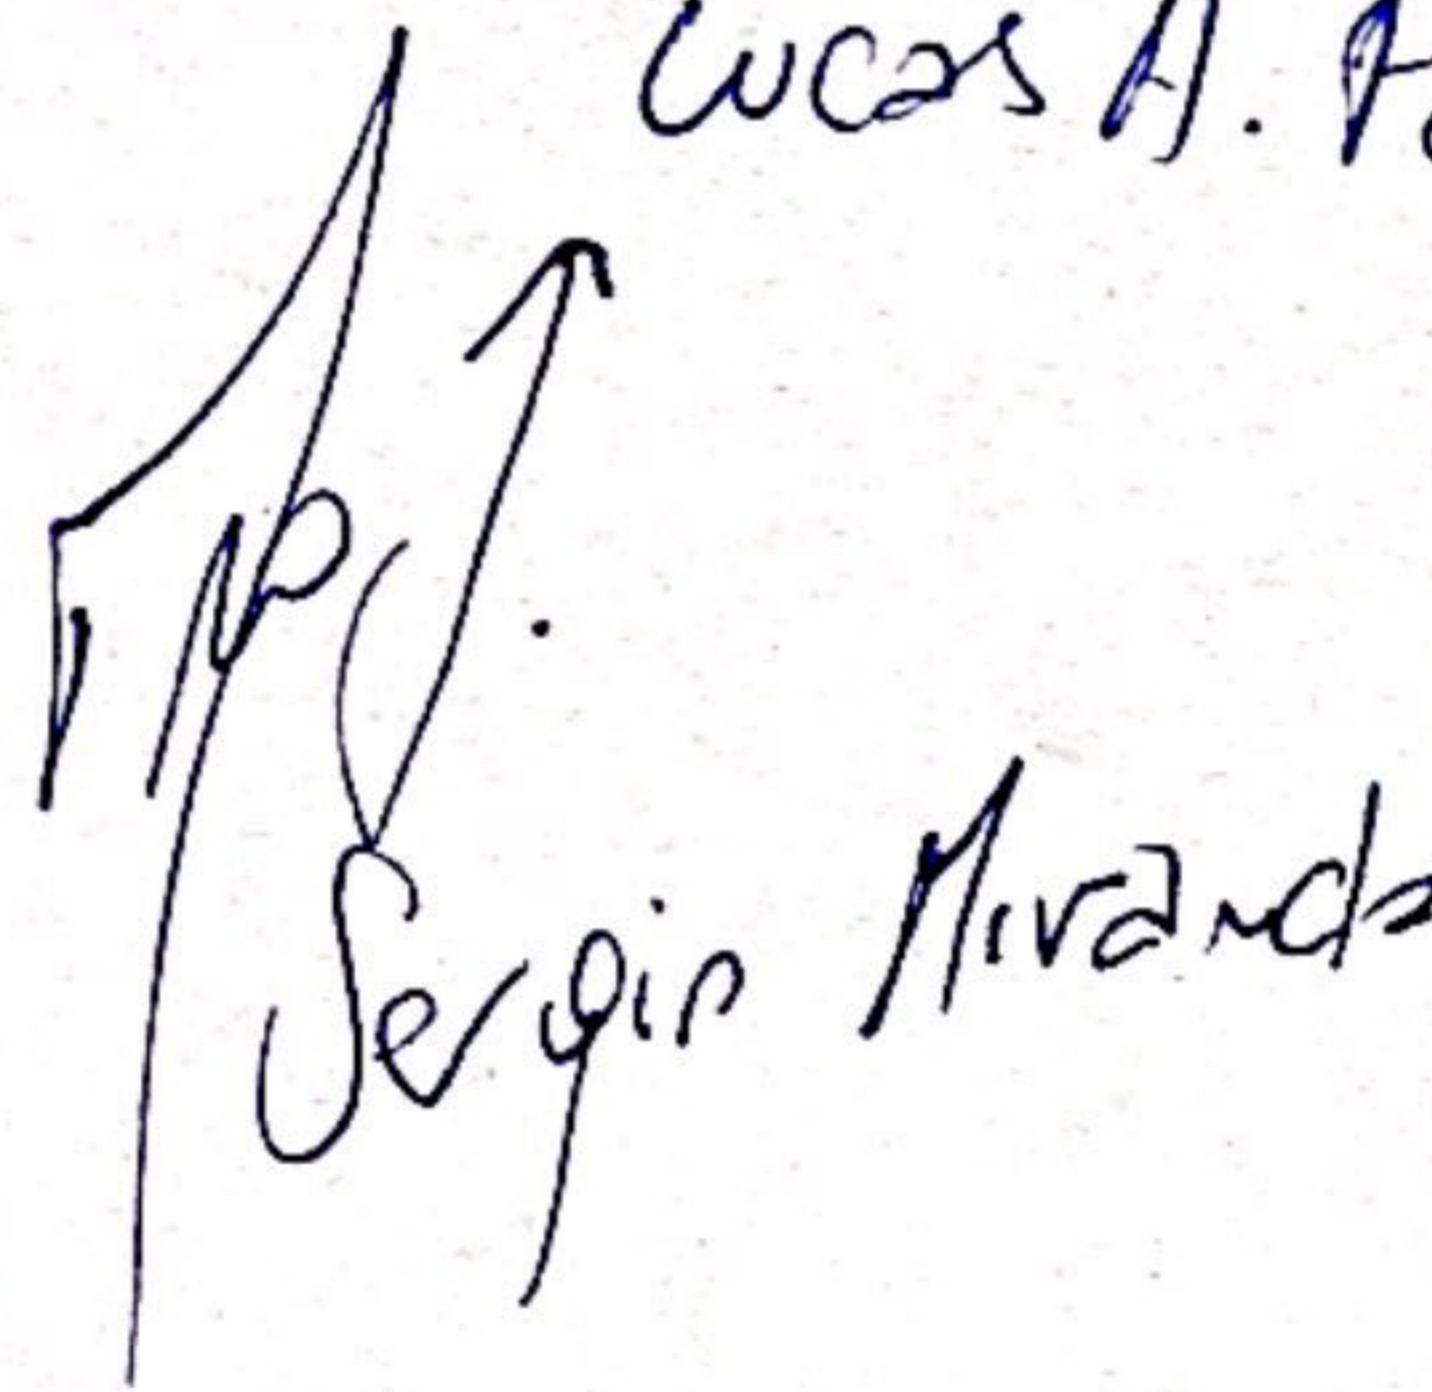 Lucas A.
Sergio Miranda